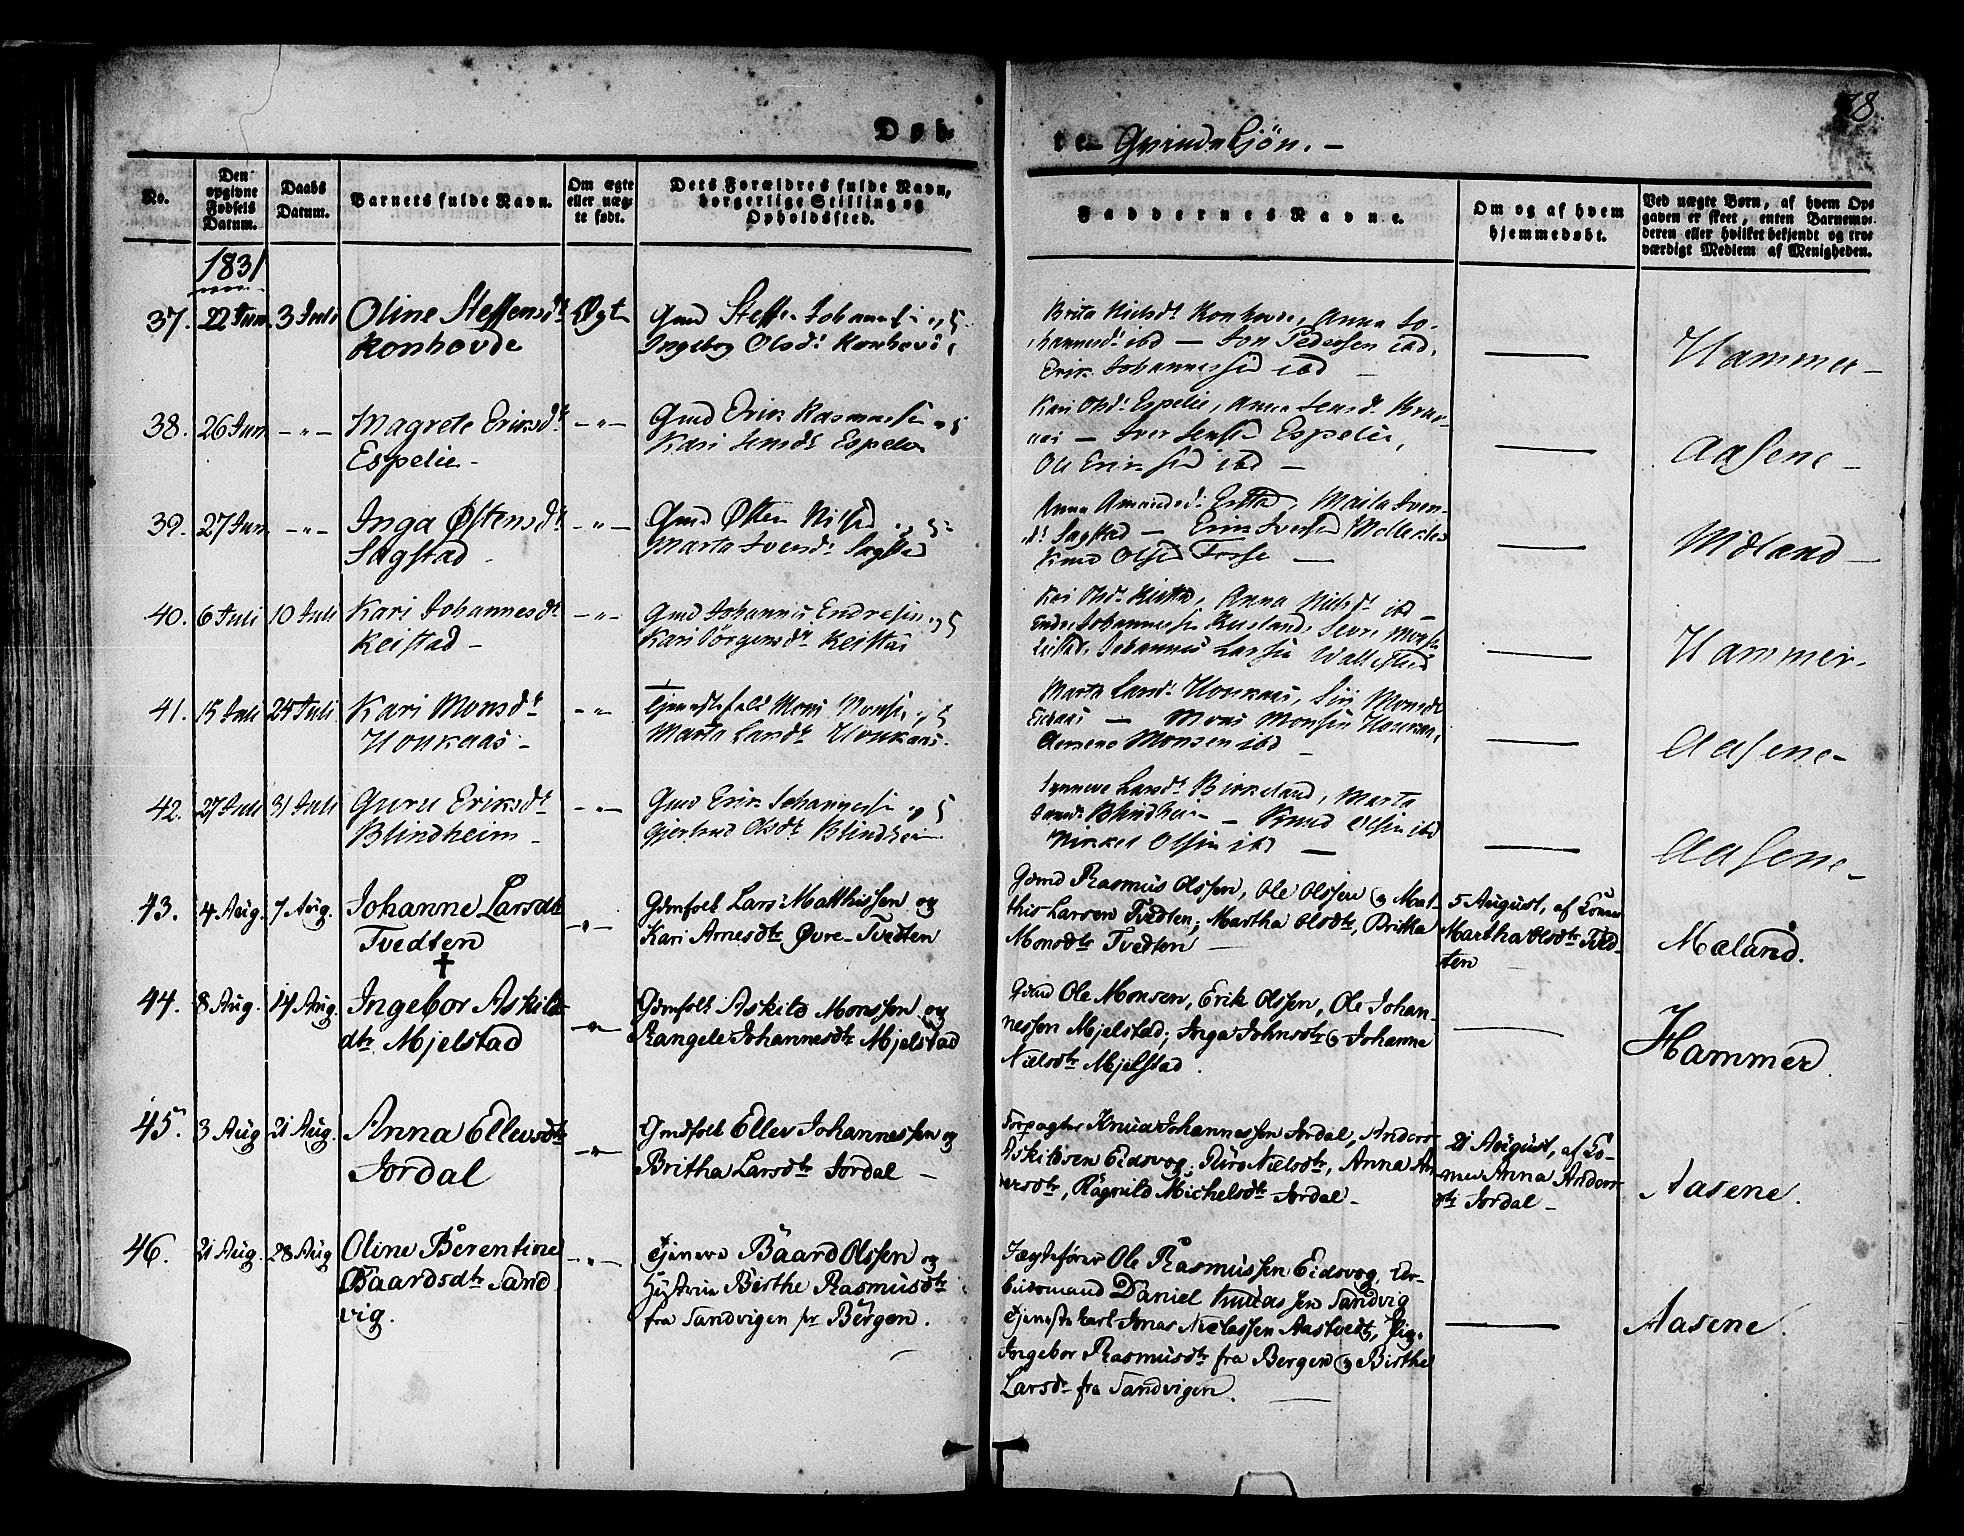 78.
Døb-
te Qvindekjön. –
No.
Den
opgivne
Fødsels
Datum.
Daabs
Datum.
Barnets fulde Navn.
Om ægte
eller uæg-
te født.
Dets Forældres fulde Navn,
borgerlige Stilling og
Opholdssted.
Faddernes Navne.
Om og af hvem
hjemmedøbt.
Ved uægte Børn, af hvem Op-
gaven er skeet, enten Barnemo-
deren eller hvilket bekjendt og tro-
værdigt Medlem af Menigheden.
1831
37. 22 Jun 3 Juli Oline Steffensdt Ægt
Konhovde
Gmd Steffen Johannessen og
Ingeborg Olsdt Konhovd
Brita Nielsdt Konhovde, Anna Jo-
hannesdt ibd – Jon Pedersen ibd,
Erik Johannessen ibd –
Hammer –
38. 26 Jun –„– Magrete Eriksdt –„–
Espelie –
Gmd Erik Rasmussen og
Kari Jensdt Espelie
Kari Olsdt Espelie, Anna Jensdt
– Iver Jensen Espelie,
Ole Eriksen ibd –
Aasene –
39. 27 Jun –„– Inga Østensdt –„–
Sagstad –
Gmd Østen Nilsen og
Marta Ivensdt Sagstad
Anna Amundsdt Maita Iven-
dt Sagstad – Erik Iversen
Knud Olsen Fosse –
Mæland –
40. 6 Juli 10 Juli Kari Johannesdt –„–
Keistad –
Gmd Johannes Endresen og
Kari Jörgensdt Keistad
Kari Olsdt Anna Nilsdt ibd –
Johannessen
Johannes Larsen
Hammer –
41. 15 Juli 24 Juli Kari Monsdt –„–
Honkaas –
Tjenestefolk Mons Monsen og
Marta Larsdt Honkaas.
Marta Larsdt Honkaas, Siri Monsdt
– Mons Monsen Honkaas,
Monsen ibd –
Aasene –
42. 27 Juli 31 Juli Guru Eriksdt –„–
Blindheim –
Gmd Erik Johannessen og
Gjertrud Olsdt Blindheim
Synneve Larsdt Birkeland, Marta
Blindheim – Knud Olsen ibd
Mikkel Olsen ibd –
Aasene –
43. 4 Aug. 7 Aug. Johanne Larsdtr –„–
Tvedten
†
Gdmfolk Lars Matthissen og
Kari Arnesdtr Øvre-Tvedten
Gdmd Rasmus Olssen, Ole Olssen og Mat-
this Larsen Tvedten; Martha Olsdtr, Britha
Monsdtr Tvedten –
5 August, af Konen
Martha Olsdtr Tved-
ten
Mæland.
44. 8 Aug. 14 Aug. Ingebor Askild- –„–
dtr Mjelstad
Gdmfolk Askild Monssen og
Rangele Johannesdtr Mjelstad
Gdmd Ole Monsen, Erik Olssen, Ole Johan-
nessen Mjelstad; Inga Johnsdtr og Johanne
Nielsdtr Mjelstad.
Hammer.
45. 3 Aug 21 Aug. Anna Ellevsdtr –„–
Jordal
Gmdfolk Ellev Johannessen og
Britha Larsdtr Jordal –
Forpagter Knud Johannessen Jordal, Anders
Askildsen Eidsvog, Guro Nielsdtr, Anna An-
dersdtr, Ragnild Michelsdtr Jordal –
21 August, af Ko-
nen Anna Anders-
dtr Jordal –
Aasene.
46. 21 Aug. 28 Aug Oline Berentine –„–
Baardsdtr Sand
vig.
Tjenere Baard Olssen og
Hustrue Birthe Rasmusdtr
fra Sandvigen pr Bergen.
Jægtefører Ole Rasmussen Eidsvog, Ar-
beidsmand Daniel Knudssen Sandvig
Tjenestekarl Jonas Nielassen Aastvedt, Pig.
Ingebor Rasmusdtr fra Bergen og Birthe
Larsdt fra Sandvigen.
Aasene.